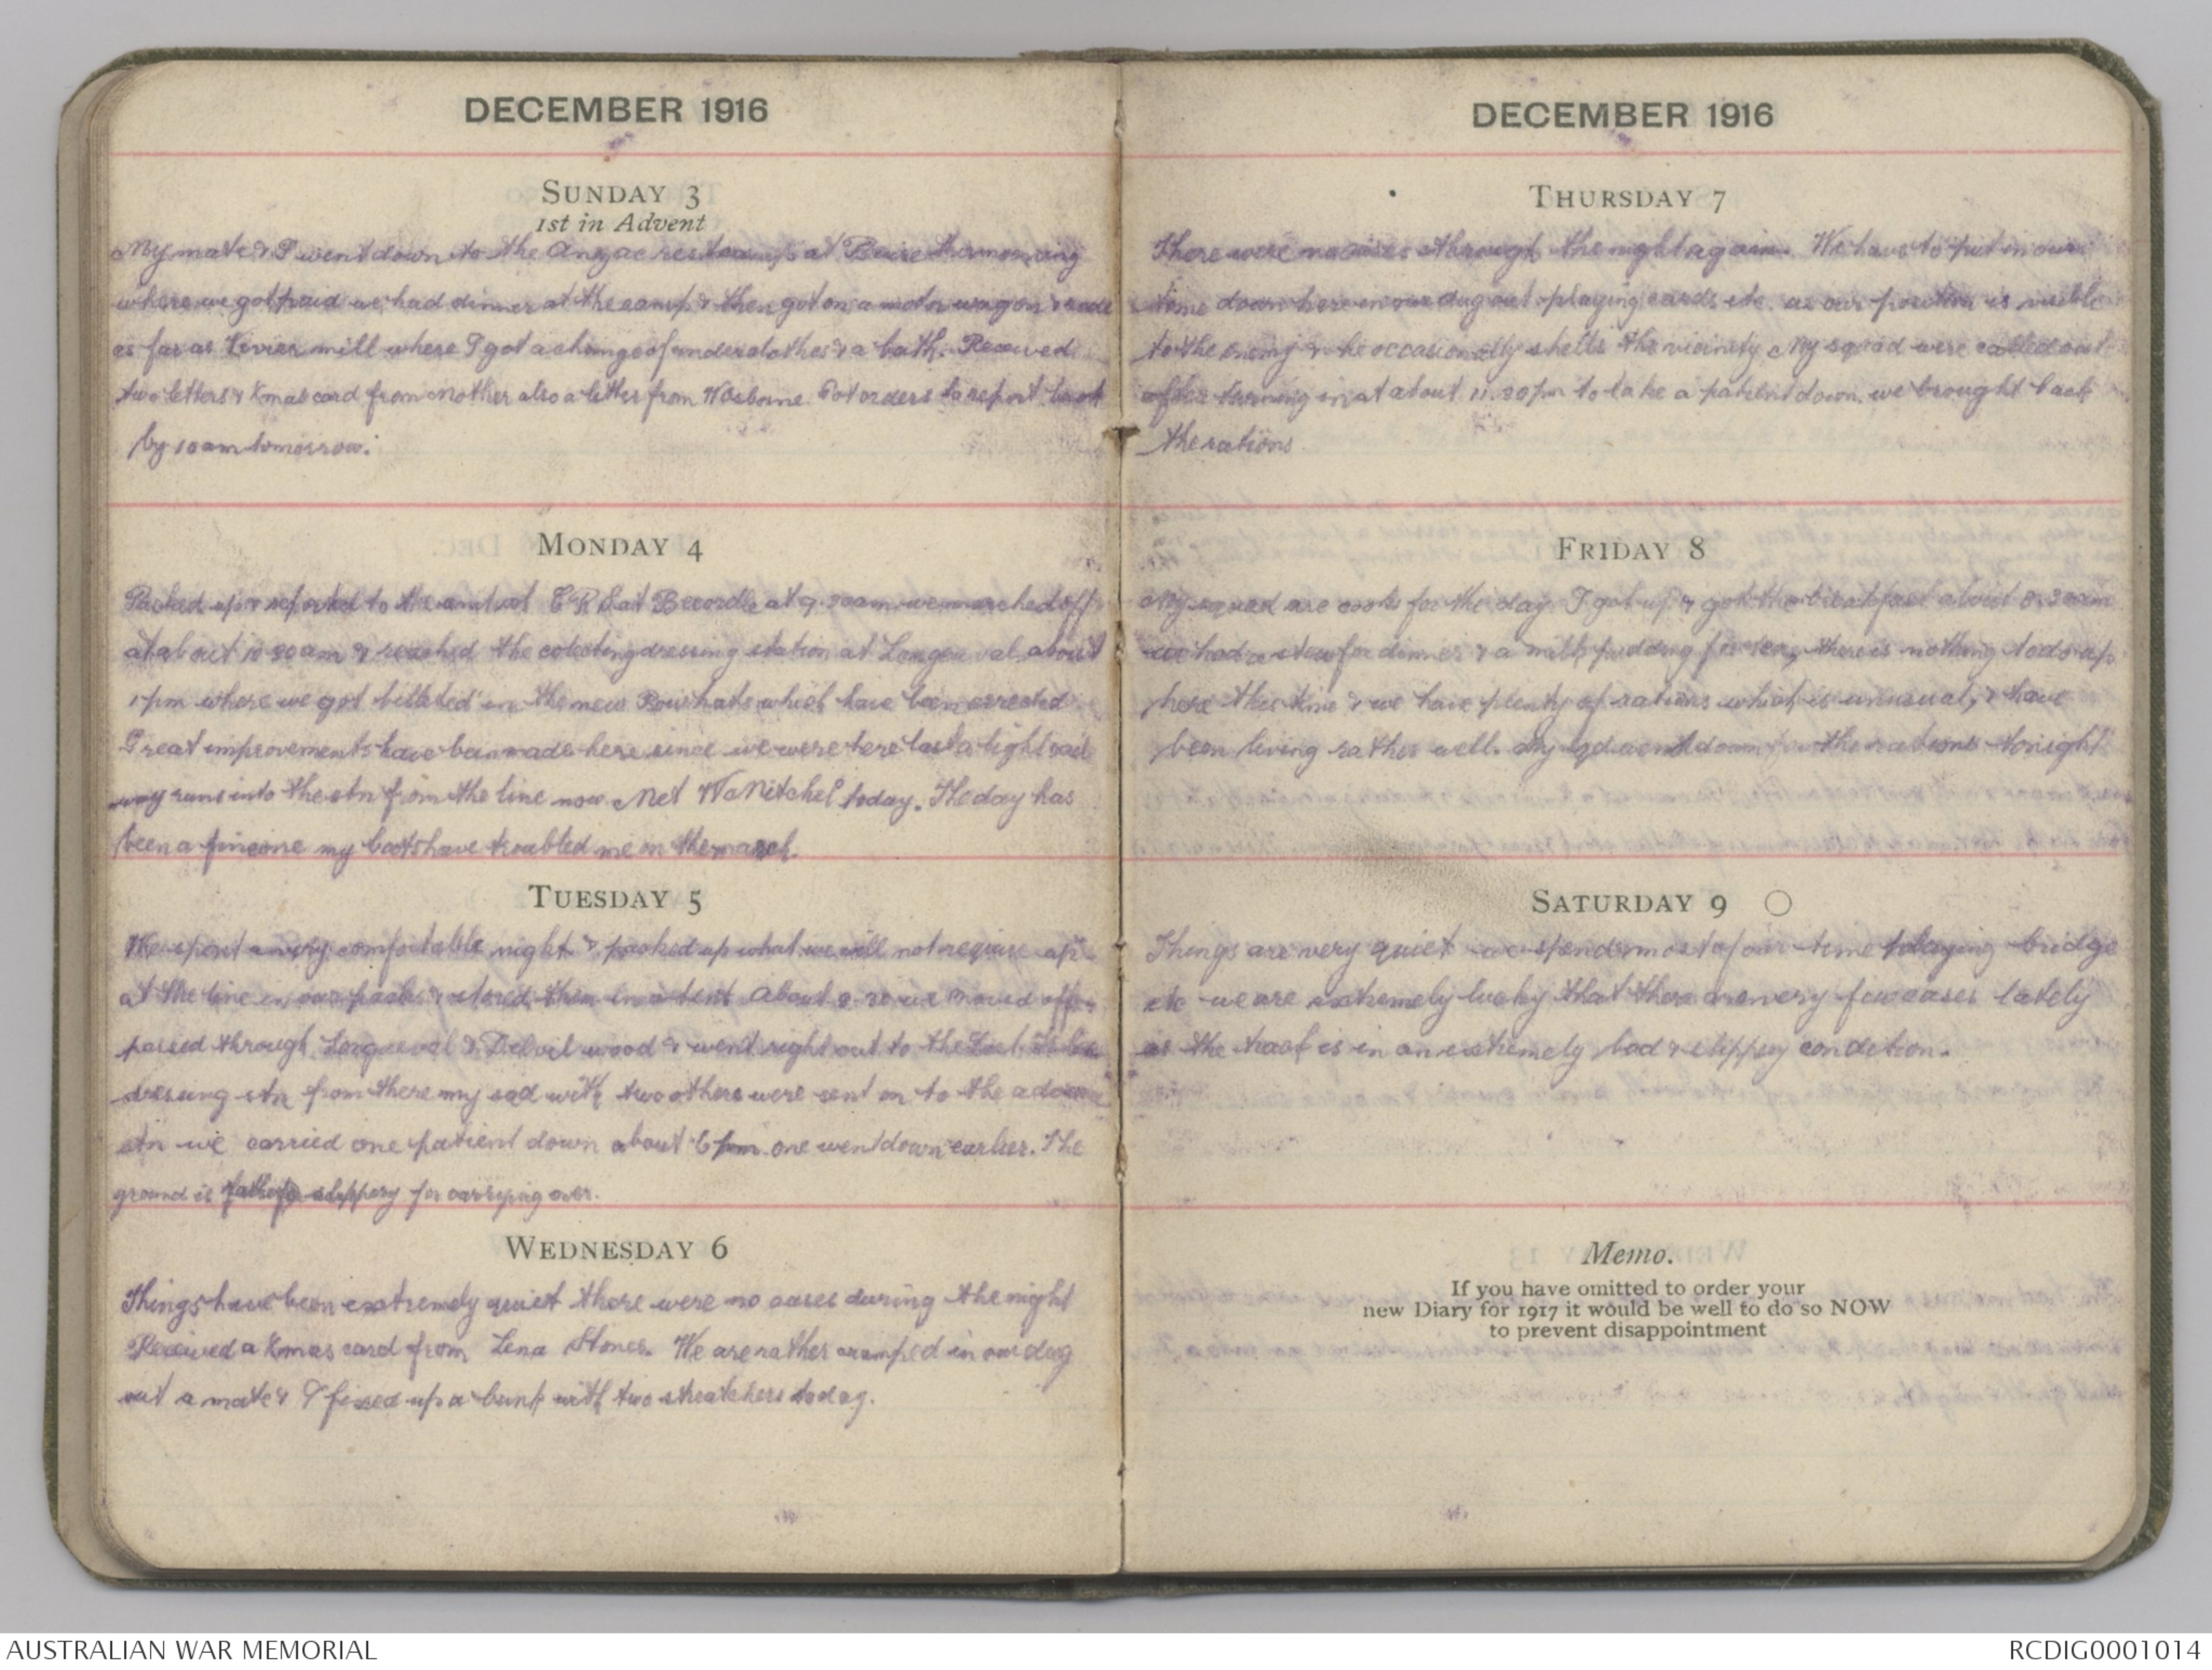 DECEMBER 1916
SUNDAY 3
1st in Advent
My mate & I went down to the Anzac at Buire morning
where we got paid we had dinner at the camp & then got on a motor wagon & rode
as far as mill where I got a change of underclothes & a bath. Received
two letters & Xmas card from Mother also a letter from Got orders to report back
by 10 am tomorrow.
MONDAY 4
Packed up & reported to the at Becordle at 9. am we marched off
at about 10 30 am & reached the colecting dressing station at Longueval about
1 pm where we got billeted in the new huts which have been errected
Great improvements have been made here since we were here last a light rail
way runs into the stn from the line now Met today. The day has
been a fine one my boots have troubled me on the march.
TUESDAY 5
We spent a very comfortable night & packed up what we will not require up
at the line in our packs & stored them in a tent About 8.30 we moved off &
passed through Longueval & Delvil wood & went right out to the
dressing stn from there my sqd with two others were sent on to the advance
stn we carried one patient down about 6 pm one went down earlier. The
ground is slippery for carrying over.
WEDNESDAY 6
Things have been extremely quiet there were no cases during the night
Received a Xmas card from Lena Stones. We are rather cramped in our dug
out a mate & I fixed up a bunk with two streatchers today.
DECEMBER 1916
THURSDAY 7
There were no cases through the night again. We have to put in our
time down here in our dugout playing cards etc. as our position is visible
to the enemy & he occasionally shells the vicinity My squad were called out
after turning in at about 11.30 pm to take a patient down. we brought back
the rations
FRIDAY 8
My squad are cooks for the day I got up & got the breakfast about 8.30am
we had a stew for dinner & a milk pudding for tea, there is nothing to do up
here this time & we have plenty of rations which is unusual, & have
been living rather well. My sqd went down for the rations tonight
SATURDAY 9
Things are very quiet we spend most of our time playing bridge
etc we are extremely lucky that there are very few cases lately
as the track is in an extremely bad & slippery condition.
Memo.
If you have omitted to order your
new Diary for 1917 it would be well to do so NOW
to prevent disappointment
AUSTRALIAN WAR MEMORIAL
RCDIG0001014